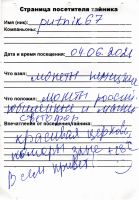 Страница посетителя тайника
Имя (ник): putnik67
Компаньоны:
Дата и время посещения: 04.06.2011
Что взял: монеты
Что положил: монеты
светофор
Впечатления от посещения тайника:
красивая церковь,
Всем привет!